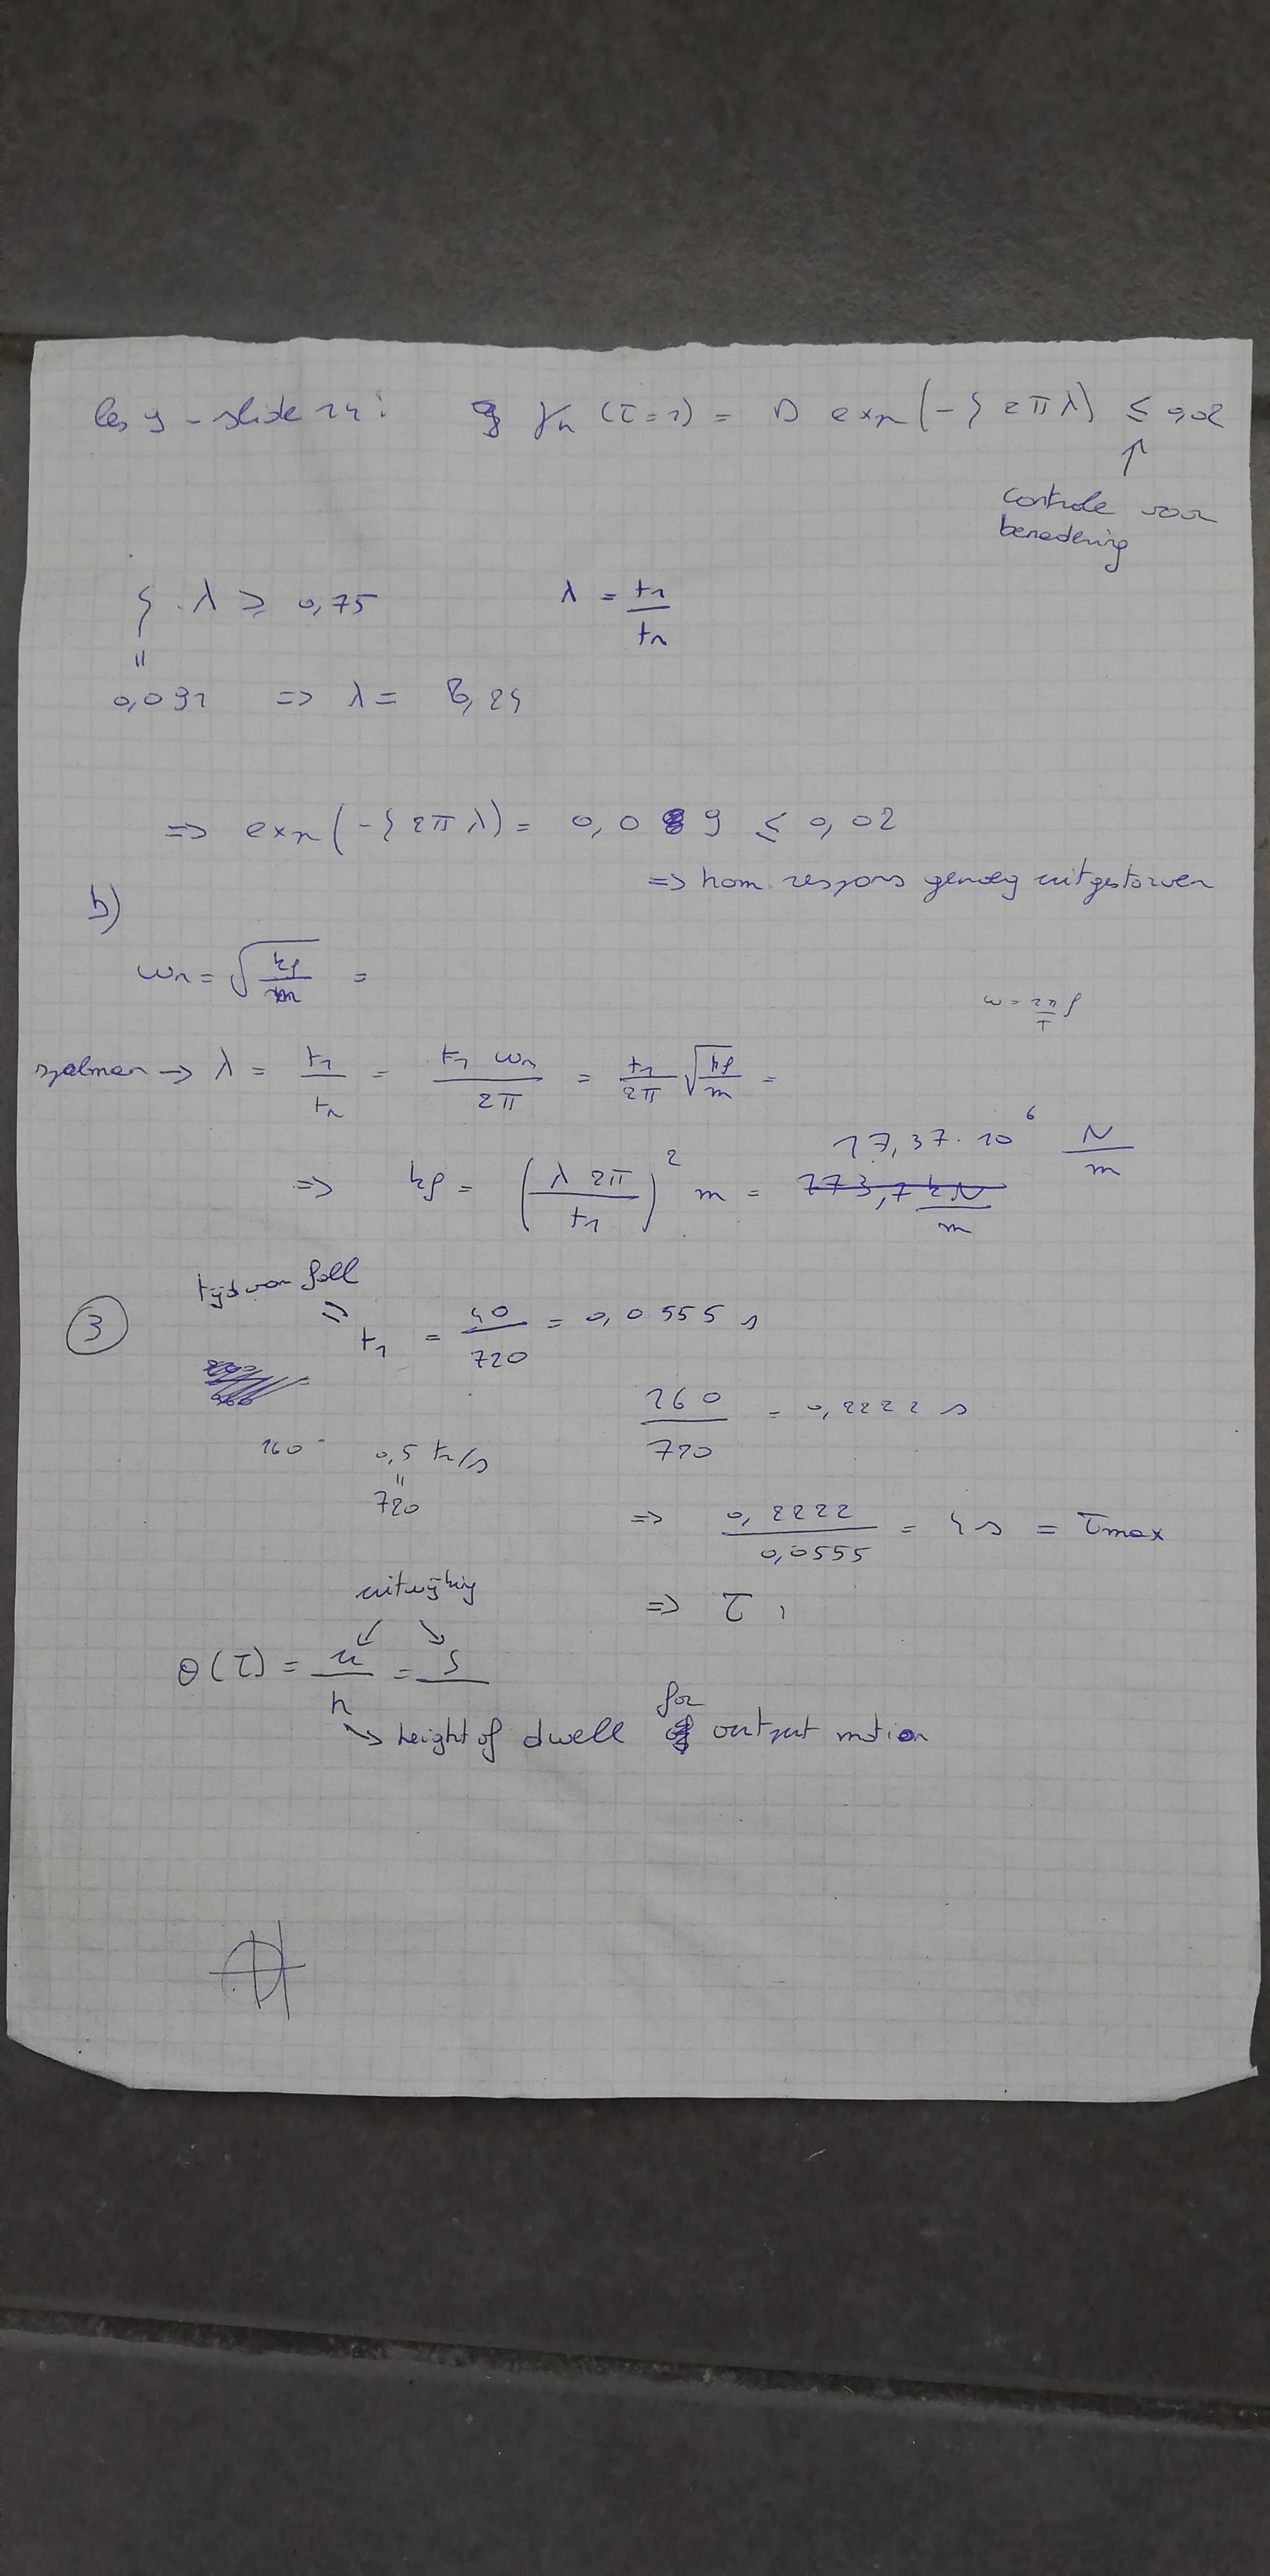 les 9 - slide 14: γh (τ=1) = D exp(-ζ2πλ) ≤ 0,02
↑
controle voor
benadering
ζ.λ ≥ 0,75 λ = t1/tn
||
0,091 => λ = 8,24
=> exp(-ζ2πλ) = 0,0 9 ≤ 0,02
=> hom. respons genoeg uitgestorven
b)
ωn = √(kf/m) =
ω = 2π/T f
opalmen → λ = t1/tn = t1 ωn/2π = t1/2π √(kf/m) =
=> kf = (λ 2π/t1)² m = 17,37.10⁶ N/m
tijd van fall
③ t1 = 40/720 = 0,0555 s
160/720 = 0,2222 s
160° 0,5 tr/s
||
720
=> 0,2222/0,0555 = 4 s = τmax
uitwijking
=> τ 1
θ(τ) = u/h = S
for
↳ height of dwell output motion